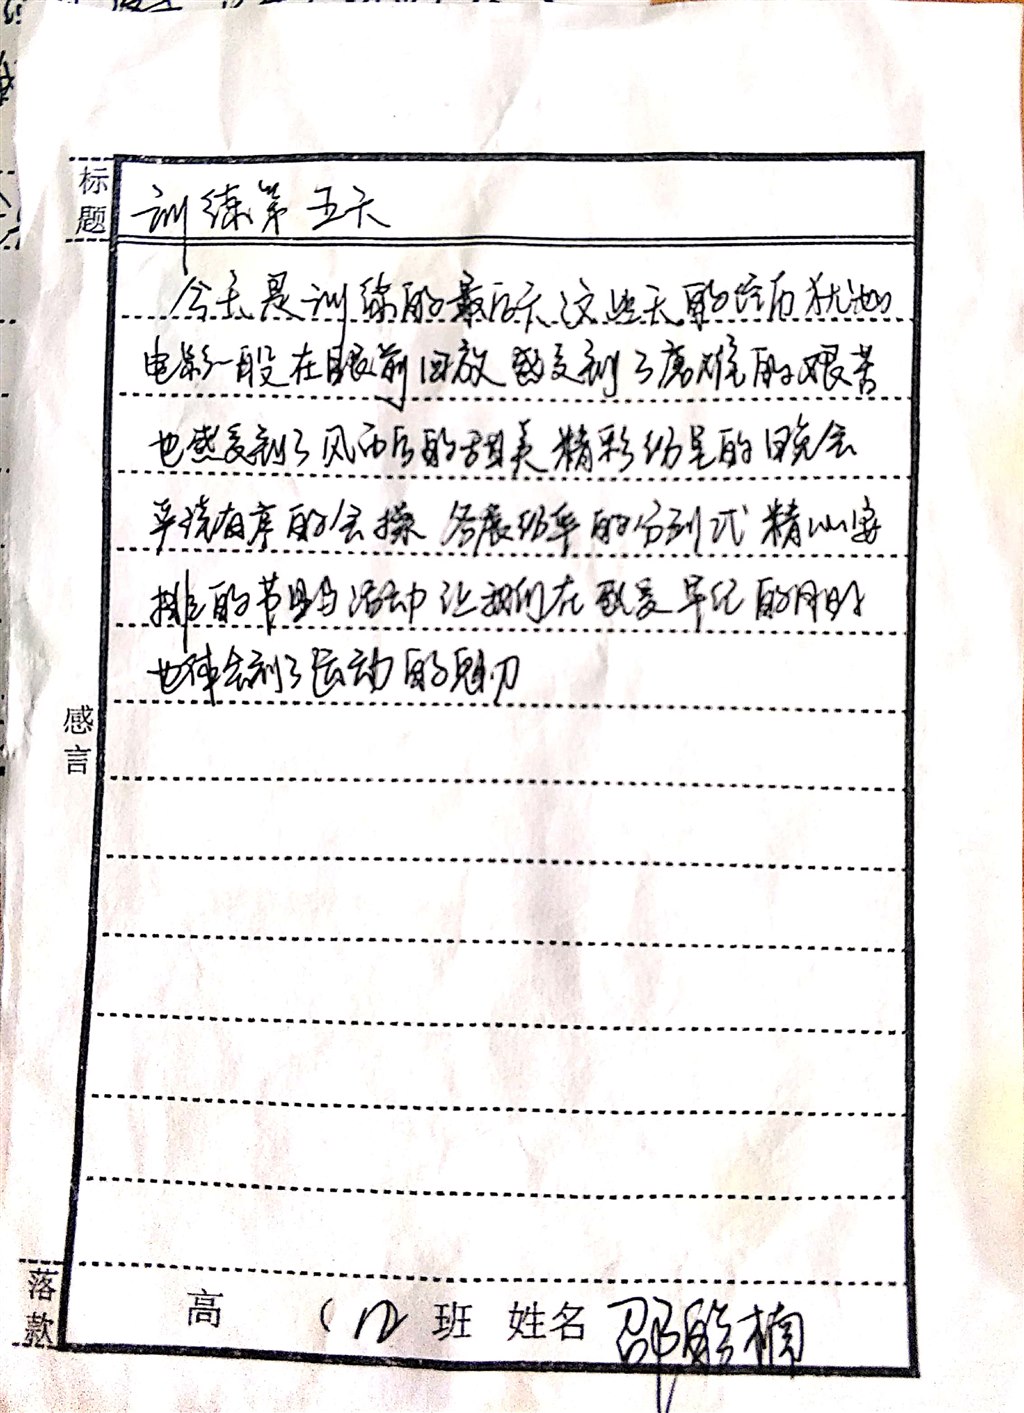 标题
训练第五天
今天是训练的最后天这些天的经历犹如
电影一段在眼前回放感受到了磨难的艰苦
也感受到了风雨后的甜美精彩纷呈的晚会
有序的会操 各展 的分列式 精心安
排的节目与活动让我们在 受军纪的同时
也体会到了运动的魅力
感言
落款
高 (12班 姓名 邵 楠